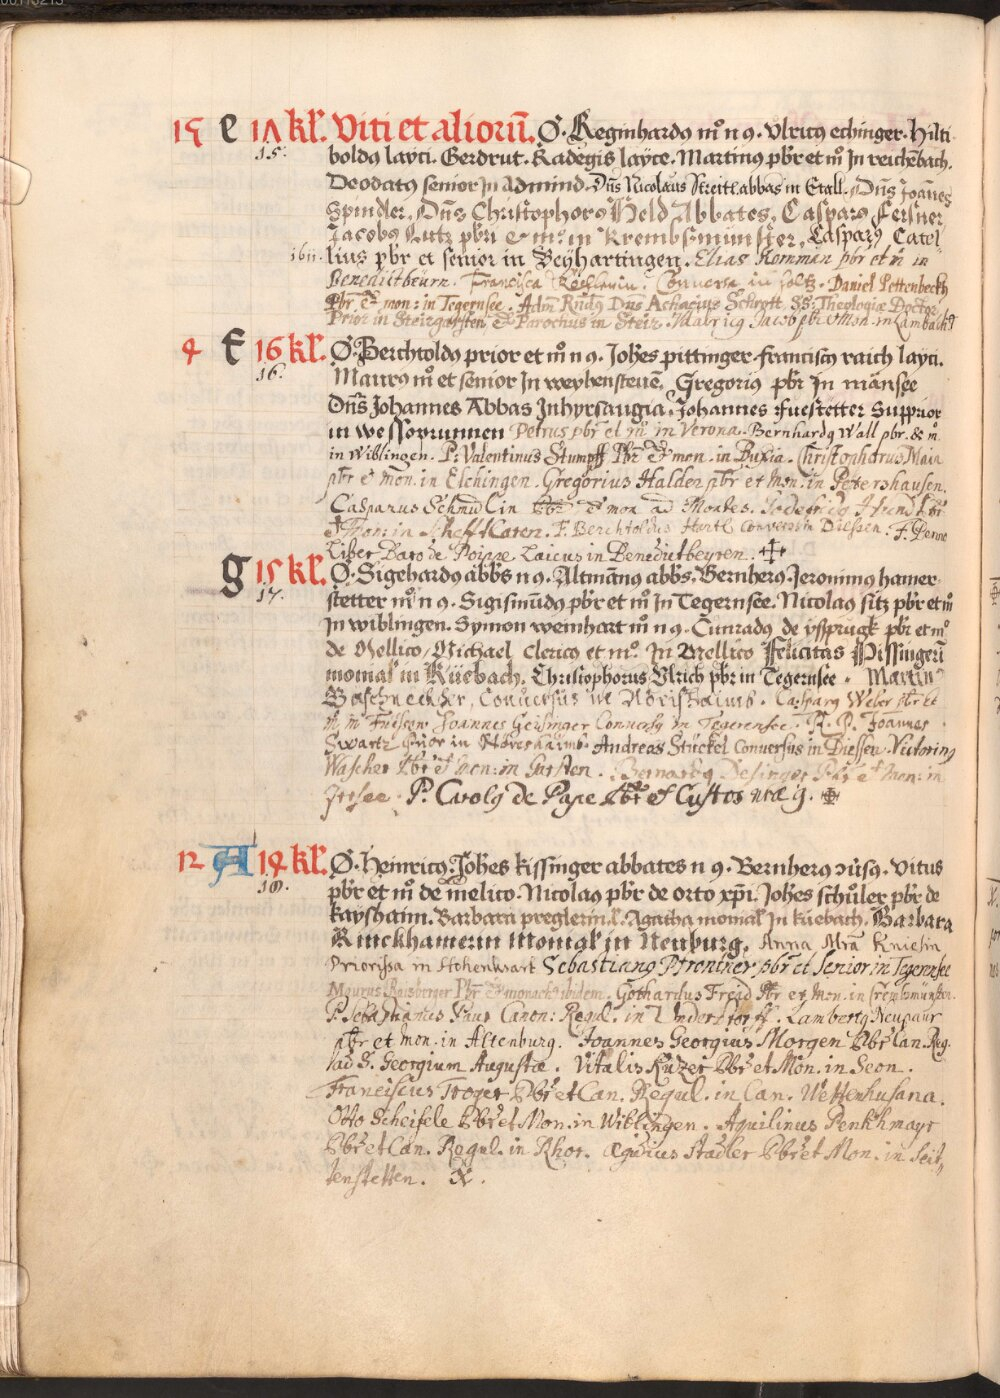 15 e 17 kl. Viti et aliorū. O. Reginhardꝯ m̊ n ꝯ. Vlricꝯ echinger. Hilti
15. boldꝯ layci. Gerdrut. Radegis layce. Martinꝯ pbr et m̊ In reichēbach.
Deodatꝯ senior In Admind. Dn̄s Nicolaus Streitl. abbas in Etall. Dn̄s Joānes
Spindler, Dn̄s Christophorꝯ Held Abbates, Casparꝯ Fersner
Jacobꝯ Lutz pbri & m̊. in Krembsmünster, Casparꝯ Catol
1611. lius pbr et senior in Beÿhartingen. Elias Kornman pbr et m̄ in
Benedictbeürn. Francisca Conversa in Daniel Pettenbeckh
Pbr & mon: in Tegernsee. Adm̄ Rn̄dꝯ Dn̄s Achacius Schrott. SS. Theologiæ Doctor
Prior in Steirgarsten & Parochus in Steir. Jacob pbr et Mon. in Lambach
4 f 16 kl. O. Berchtoldꝯ prior et m̊ n ꝯ. Joh̄es pittinger. franciscꝯ raich layci.
16. Maurꝯ m̊ et senior In weyhenstevē. Gregoriꝯ pbr In mānsee
Dn̄s Johannes Abbas In hyrsaugia, Johannes Fuestetter Supprior
in wessobrunnen Petrus pbr et m̊ in Verona. Bernhardꝯ Wall pbr. & m̊
in Wiblingen. P: Valentinus Stumpff Pbr & mon. in Buxia. Christophorus Mair
pbr & mon. in Elchingen. Gregorius Halder pbr et Mon. in Petershausen.
Casparus Schmidlin pbr & mon ad Montes. Godefrid Hund pbr
& Mon: in Scheftlaren. F. Berchtoldus Hartl conversus in Diessen. F.
Liber Baro de Poippe Laicus in Benedictbeyren. ✢
g 15 kl. O. Sigehardꝯ abb̄s n ꝯ. Altmānꝯ abb̄s. Bernherꝯ. Jeronimꝯ hamer-
17. stetter m̊ n ꝯ. Sigismūdꝯ pbr et m̊ In Tegernsee. Nicolaꝯ sitz pbr et m̊
In wiblingen. Symon weinhart m̊ n ꝯ. Cunradꝯ de yssprugk pbr et m̊
de Mellico, Michael clericꝯ et m̊. In Mellico Felicitas Pissingerī
monial in Küebach, Christophorus Vlrich pbr in Tegernsee. Martinꝯ
Conuersus in Norishaimb. Casparꝯ Weber pbr et
m. in Fuessen. Joannes Geisinger Conuersꝯ in Tegernsee. R. P. Joannes
Swartz prior in Noreshaimb. Andreas Stückel Conversus in Diessen. Victorinꝯ
Wascher pbr et mon: in Garsten. Bernardꝯ Desinger Pbr et Mon: in
Irrsee. P. Carolꝯ de Pape pbr et Custos
12 A 14 kl. O. Heinricꝯ. Joh̄es kissinger abbates n ꝯ. Bernherꝯ ɔūsꝯ. Vitus
18. pbr et m̊ de melico. Nicolaꝯ pbr de orto xp̄i. Joh̄es schuler pbr de
kayshaim. Barbara preglerin l. Agatha monial In küebach. Barbara
Rinckhamerin Monial in Neuburg, Anna Mrā Knielin
Priorissa in Hohenwart Sebastianꝯ Pfrontner pbr et senior in Tegernsee
Maurus Roisberger Pbr & monachꝯ ibidem. Gothardus Freid pbr et Mon. in Crembsmünster.
P. Sebastianus Canon: Regul. in Understorff. Lambertꝯ Neupaur
pbr et mon. in Altenburg. Joannes Georgius Morgen Pbr Can. Reg.
ad S. Georgium Augustæ. Vitalis Kuzer Pbr et Mon. in Seon.
Franciscus Troger Pbr et Can. Regul. in Can. Wettenhusana.
Otto Scheifele Pbr et Mon. in Wiblingen. Aquilinus Penkhmayr
Pbr et Can. Regul. in Rhor. Ægidius Stadler Pbr et Mon. in Seit-
tenstetten. X.